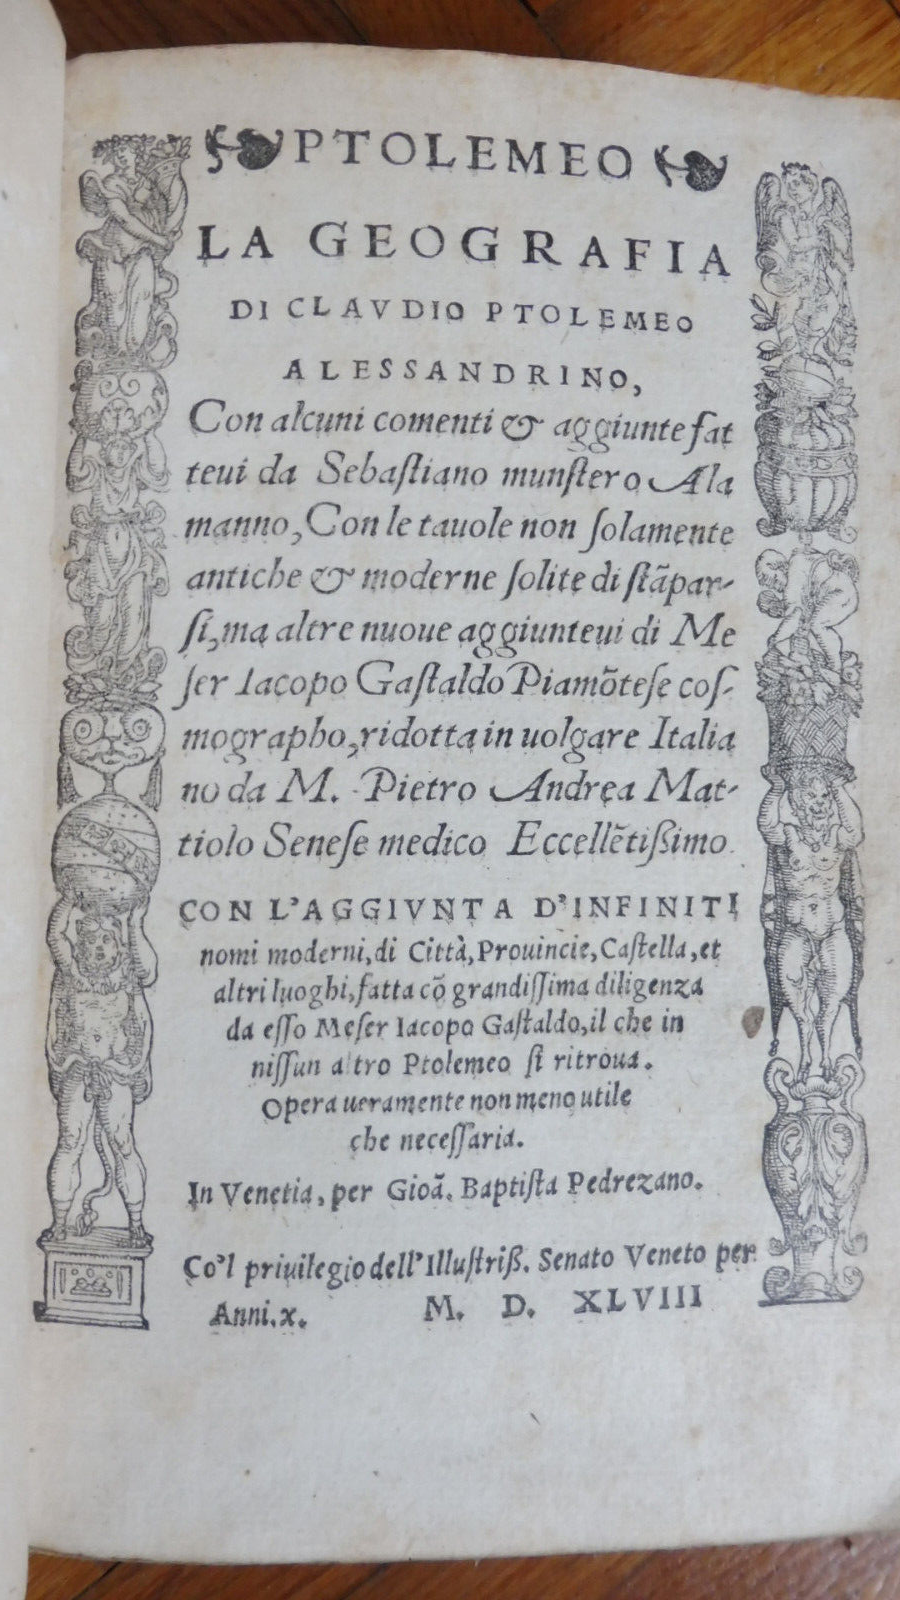 PTOLEMEO
LA GEOGRAFIA
DI CLAVDIO PTOLEMEO
ALESSANDRINO,
Con alcuni comenti & aggiunte fat
teui da Sebaſtiano munſtero Ala
manno, Con le tauole non ſolamente
antiche & moderne ſolite di ſtãpar-
ſi, ma altre nuoue aggiunteui di Me
ſer Iacopo Gaſtaldo Piamõteſe coſ-
mographo, ridotta in uolgare Italia
no da M. Pietro Andrea Mat-
tiolo Seneſe medico Eccellẽtiſſimo.
CON L'AGGIVNTA D'INFINITI
nomi moderni, di Città, Prouincie, Caſtella, et
altri luoghi, fatta cõ grandiſſima diligenza
da eſſo Meſer Iacopo Gaſtaldo, il che in
niſſun altro Ptolemeo ſi ritroua.
Opera ueramente non meno utile
che neceſſaria.
In Venetia, per Gioã. Baptiſta Pedrezano.
Co'l priuilegio dell'Illuſtriſſ. Senato Veneto per
Anni.x. M. D. XLVIII